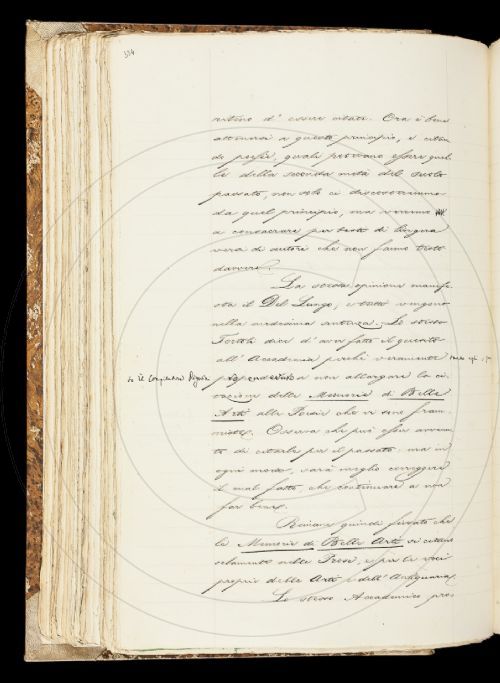 334
d'essere citati. Ora è bene
attenersi a questo principio, e
da poesie, quali possano essere quel-
le della seconda metà del secolo
passato, non solo ci discosteremmo
da quel principio, ma verremmo
a consacrare per testo di lingua
versi di autori che non fanno testo
davvero.
La stessa opinione manife-
sta il Del Lungo, e tutti vengono
nella medesima sentenza. Lo stesso
Tortoli dice d'aver fatto il quesito
all'Accademia perchè veramente
a non allargare la ci-
tazione delle Memorie di Belle
Arti alle Poesie che vi sono fram-
miste. Osserva che può essere avvenu-
to di citarle per il passato: ma in
ogni modo, sarà meglio correggere
il mal fatto, che continuare a non
far bene.
Rimane quindi fissato che
le Memorie di Belle Arti si citano
solamente nelle Prose, e per le voci
proprie delle Arti e dell'Antiquaria.
Lo stesso Accademico pro-
so il Compilatore